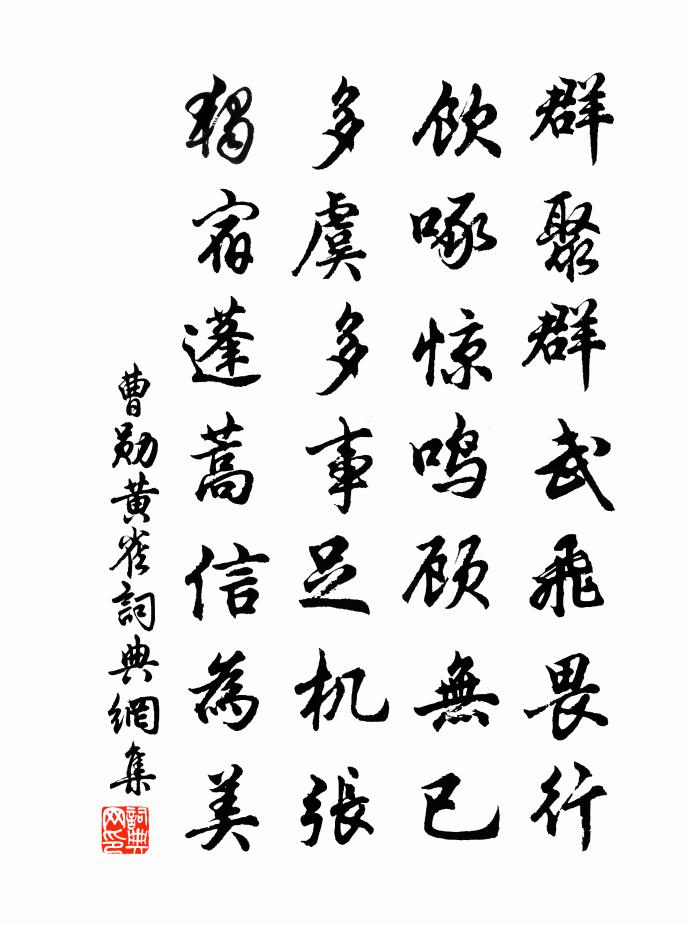 群聚群武飛畏行
飲啄惊鸣顾無已
多虞多事足机張
獨宿蓬蒿信為美
曹勋黄雀詞典網集
詞典网印